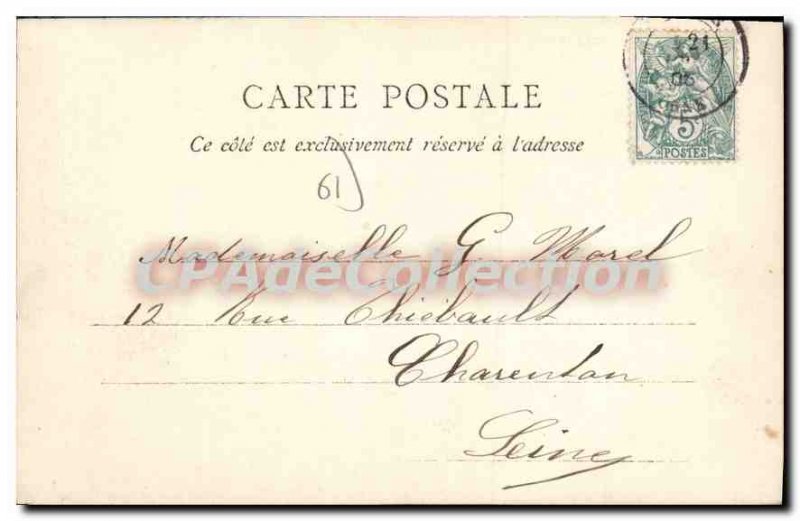 21
05
CARTE POSTALE
5
POSTES
Ce côté est exclusivement réservé à l'adresse
61
Mademoiselle G Morel
CPAdeCollection
12 Rue Thiébault
Charenton
Seine